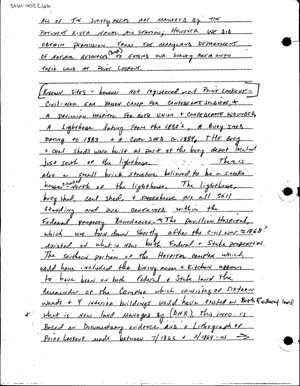 ALL OF THE SURVEY AREAS ARE MANAGED BY THE
PATUXENT RIVER NAVAL AIR STATION, HOWEVER WE DID
OBTAIN PERMISSION FROM THE MARYLAND DEPARTMENT
OF NATURAL RESOURCES (DNR) TO EXTEND OUR SURVEY AREA INTO
THEIR LAND AT POINT LOOKOUT.
Known Sites - however NOT registered visit Point Lookout -
Civil-War ERA PRISON CAMP FOR CONFEDERATE SOLDIERS, &
A PAVILION HOSPITAL FOR BOTH UNION & CONFEDERATE WOUNDED,
A Lighthouse dating from the 1830's, A Buoy Shed
DATING TO 1883 & A COAL SHED CA. 1884, THE BUOY
& coal sheds were built as part of the buoy depot located
just south of the lighthouse. There is
also a small brick structure believed to be a smoke
house north of the lighthouse. The lighthouse,
buoy shed, coal shed, & smokehouse are all still
standing and are contained within the
Federal property Boundaries. The pavilion Hospital,
which was torn down shortly after the civil war 1868
existed on what is now both Federal & State properties.
The southern portion of the Hospital complex which
would have included the dining room & kitchen appears
to have been on both Federal & State land the
remainder of the complex which consisted of sixteen
wards & 4 interior buildings would have existed on Both (Federal land)
& what is now land managed by (DNR). This info. is
Based on Documentary evidence and a Lithograph of
Point Lookout made between 7/1863 & 2/1864